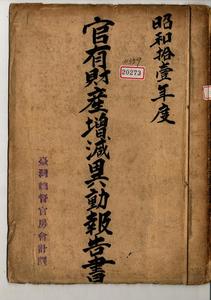 昭和拾壹年度
官有財産增減異動報告書
20273
臺灣總督官房會計課